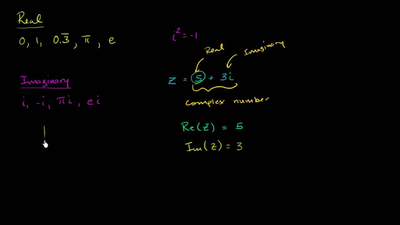 Real
0, 1, 0.3̅, π, e
Imaginary
i, -i, πi, ei
i² = -1
Real
Imaginary
z = 5 + 3i
complex number
Re(z) = 5
Im(z) = 3